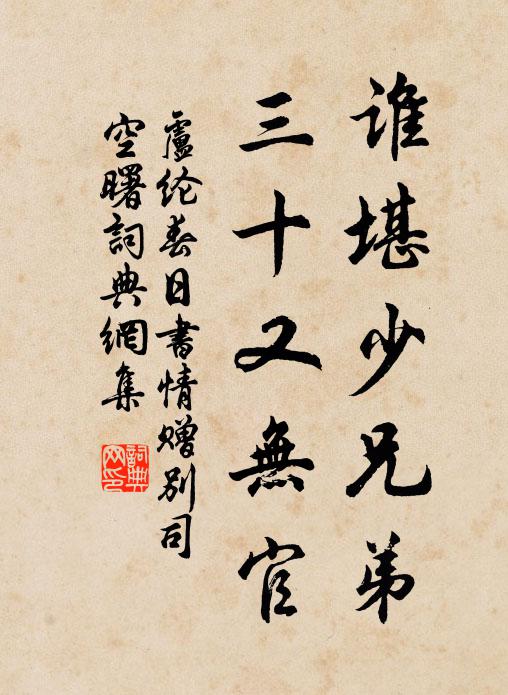 谁堪少兄弟
三十又無官
盧纶春日書情贈别司
空曙詞典網集
詞典网印